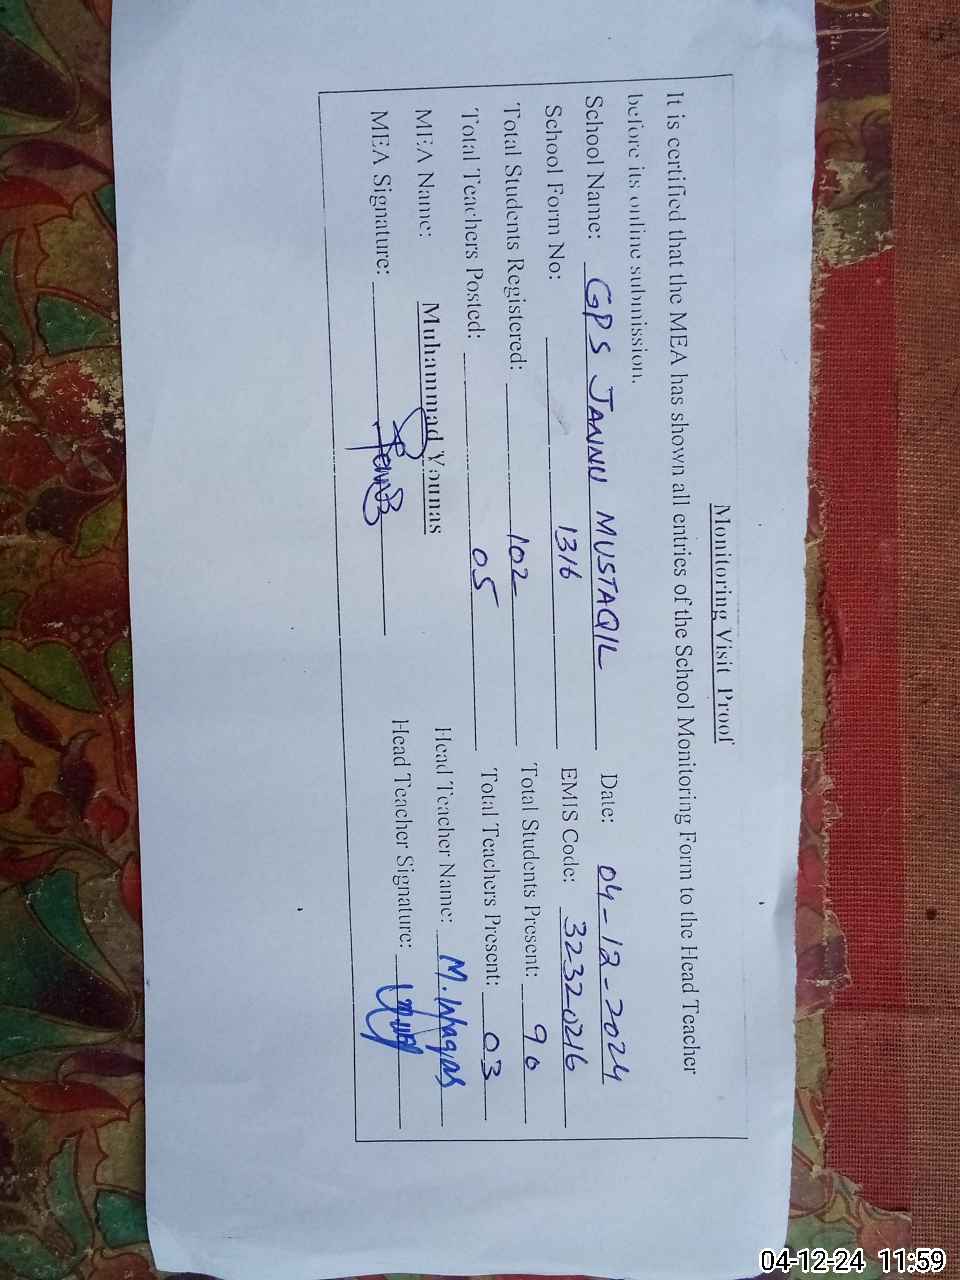 Monitoring Visit Proof
It is certified that the MEA has shown all entries of the School Monitoring Form to the Head Teacher
before its online submission.
School Name: GPS JANNU MUSTAQIL Date: 04-12-2024
School Form No: 1316 EMIS Code: 32320216
Total Students Registered: 102 Total Students Present: 90
Total Teachers Posted: 05 Total Teachers Present: 03
MEA Name: Muhammad Younas Head Teacher Name: M. Waqas
MEA Signature: Head Teacher Signature:
04-12-24 11:59